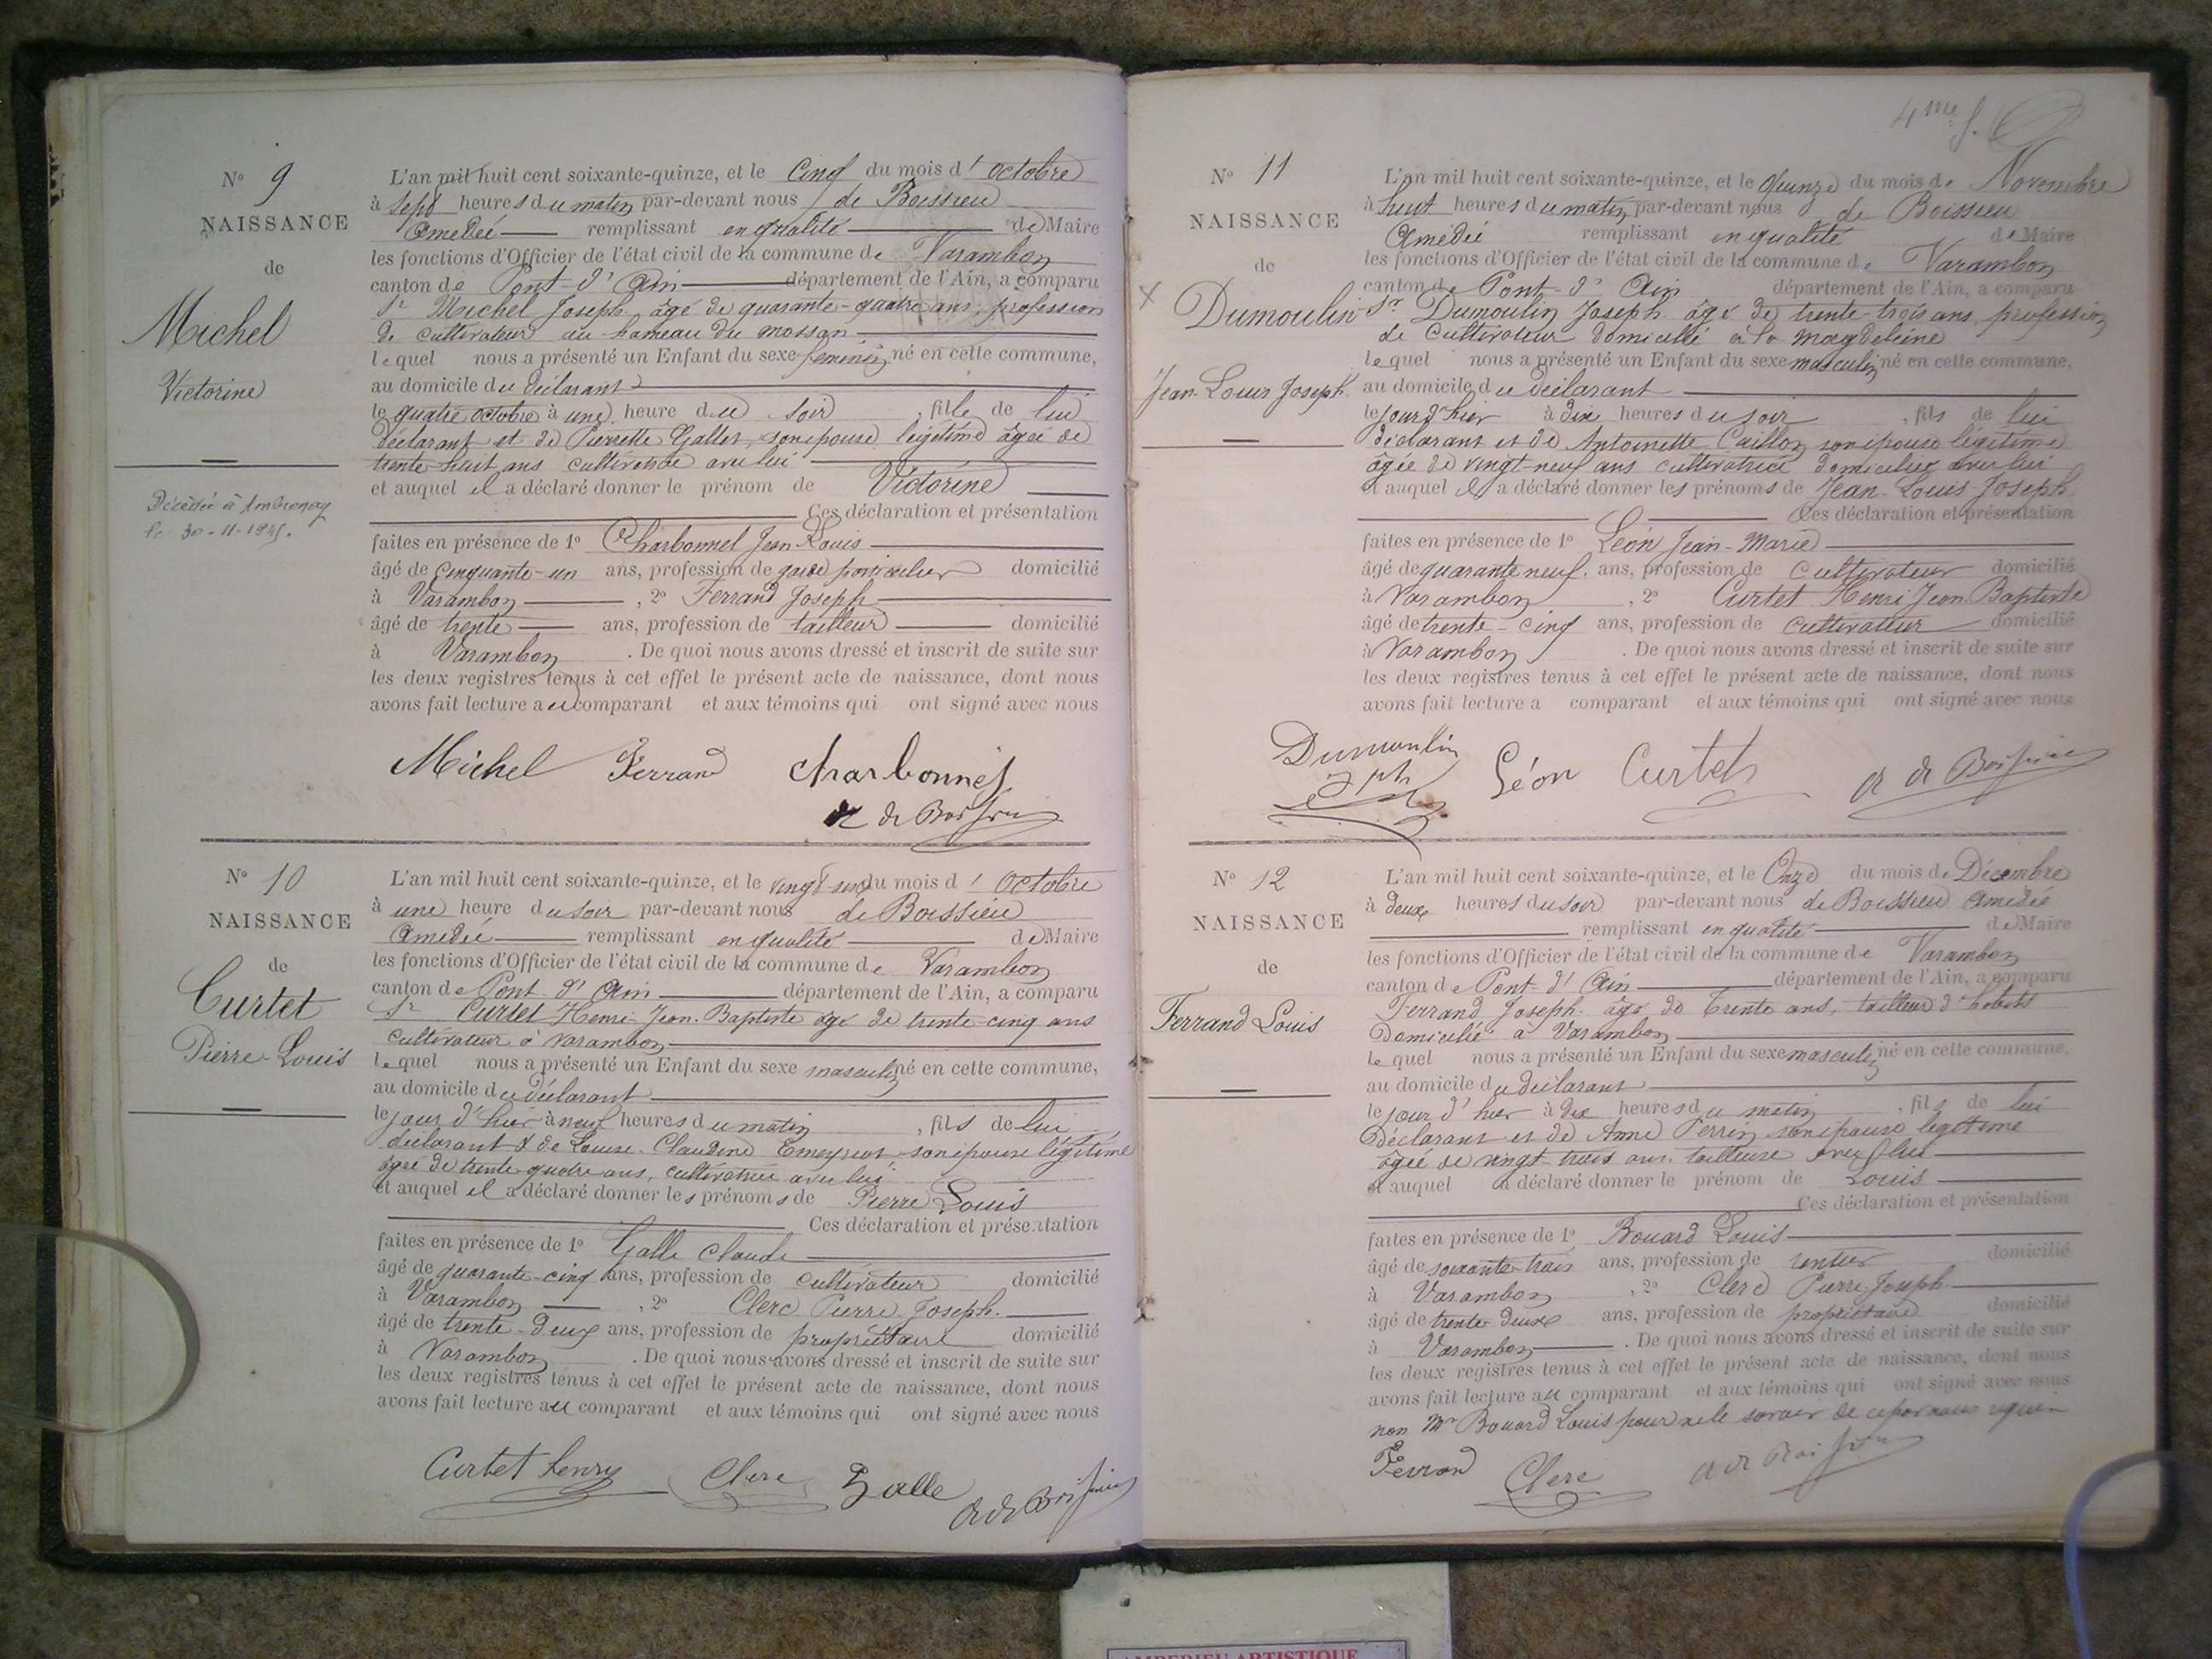 N° 9
NAISSANCE
de
Michel
Victorine
Décédée à Ambronay
le 30-11-1945.
L'an mil huit cent soixante-quinze, et le Cinq du mois d'Octobre
à Sept heures du matin par-devant nous de Boissieu
Amédée remplissant en qualité de Maire
les fonctions d'Officier de l'état civil de la commune de Varambon
canton de Pont-d'Ain département de l'Ain, a comparu
Sr Michel Joseph âgé de quarante-quatre ans, profession
de cultivateur au hameau du mossan
lequel nous a présenté un Enfant du sexe feminin né en cette commune,
au domicile du déclarant
le quatre octobre à une heure du soir, fille de lui
déclarant et de Pierrette Gallet son épouse légitime âgée de
trente huit ans cultivatrice avec lui
et auquel il a déclaré donner le prénom de Victorine
Ces déclaration et présentation
faites en présence de 1° Charbonnel Jean-Louis
âgé de cinquante-un ans, profession de garde particulier domicilié
à Varambon, 2° Ferrand Joseph
âgé de trente ans, profession de tailleur domicilié
à Varambon. De quoi nous avons dressé et inscrit de suite sur
les deux registres tenus à cet effet le présent acte de naissance, dont nous
avons fait lecture au comparant et aux témoins qui ont signé avec nous
Michel Ferrand Charbonnel
A de Boissieu
N° 10
NAISSANCE
de
Curtet
Pierre-Louis
L'an mil huit cent soixante-quinze, et le vingt-six du mois d'Octobre
à une heure du soir par-devant nous de Boissieu
Amédée remplissant en qualité de Maire
les fonctions d'Officier de l'état civil de la commune de Varambon
canton de Pont-d'Ain département de l'Ain, a comparu
Sr Curtet Henri-Jean-Baptiste âgé de trente-cinq ans
cultivateur à Varambon
lequel nous a présenté un Enfant du sexe masculin né en cette commune,
au domicile du déclarant
le jour d'hier à neuf heures du matin, fils de lui
déclarant & de Louise Claudine son épouse légitime
âgée de trente-quatre ans, cultivatrice avec lui
et auquel il a déclaré donner les prénoms de Pierre Louis
Ces déclaration et présentation
faites en présence de 1° Galle Claude
âgé de quarante-cinq ans, profession de cultivateur domicilié
à Varambon, 2° Clerc Pierre-Joseph.
âgé de trente-deux ans, profession de propriétaire domicilié
à Varambon. De quoi nous avons dressé et inscrit de suite sur
les deux registres tenus à cet effet le présent acte de naissance, dont nous
avons fait lecture au comparant et aux témoins qui ont signé avec nous
Curtet henry Clerc Galle A de Boissieu
4me f.
N° 11
NAISSANCE
de
Dumoulin
Jean-Louis Joseph
L'an mil huit cent soixante-quinze, et le Quinze du mois de Novembre
à huit heures du matin par-devant nous de Boissieu
Amédée remplissant en qualité de Maire
les fonctions d'Officier de l'état civil de la commune de Varambon
canton de Pont-d'Ain département de l'Ain, a comparu
Sr Dumoulin Joseph âgé de trente-trois ans profession
de Cultivateur domicilié à la magdeleine
lequel nous a présenté un Enfant du sexe masculin né en cette commune.
au domicile du déclarant
le jour d'hier à dix heures du soir, fils de lui
déclarant et de Antoinette Caillon son épouse légitime
âgée de vingt-neuf ans cultivatrice domiciliée avec lui
et auquel il a déclaré donner les prénoms de Jean-Louis Joseph
Ces déclaration et présentation
faites en présence de 1° Léon Jean-Marie
âgé de quarante neuf ans, profession de Cultivateur domicilié
à Varambon, 2° Curtet Henri Jean Baptiste
âgé de trente-cinq ans, profession de Cultivateur domicilié
à Varambon. De quoi nous avons dressé et inscrit de suite sur
les deux registres tenus à cet effet le présent acte de naissance, dont nous
avons fait lecture a comparant et aux témoins qui ont signé avec nous
Dumoulin
Jph Léon Curtet A de Boissieu
N° 12
NAISSANCE
de
Ferrand Louis
L'an mil huit cent soixante-quinze, et le Onze du mois de Décembre
à deux heures du soir par-devant nous de Boissieu Amédée
remplissant en qualité de Maire
les fonctions d'Officier de l'état civil de la commune de Varambon
canton de Pont-d'Ain département de l'Ain, a comparu
Ferrand Joseph âgé de Trente ans, tailleur d'habits
Domicilié à Varambon
lequel nous a présenté un Enfant du sexe masculin né en cette commune.
au domicile du déclarant
le jour d'hier à dix heures du matin, fils de lui
Déclarant et de Anne Perrin son épouse légitime
âgée de vingt-trois ans, tailleuse avec lui
et auquel a déclaré donner le prénom de Louis
Ces déclaration et présentation
faites en présence de 1° Bouard Louis
âgé de soixante-trois ans, profession de rentier domicilié
à Varambon, 2° Clerc Pierre-Joseph
âgé de trente-deux ans, profession de propriétaire domicilié
à Varambon. De quoi nous avons dressé et inscrit de suite sur
les deux registres tenus à cet effet le présent acte de naissance, dont nous
avons fait lecture au comparant et aux témoins qui ont signé avec nous
non Mr Bouard Louis pour ne le savoir de ce par nous requis
Ferrand Clerc A de Boissieu